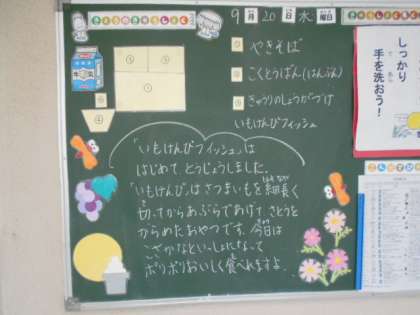 きょうのきゅうしょく
9月20日水曜日
① やきそば
② こくとうぱん(はんぶん)
③ きゅうりのしょうがづけ
いもけんぴフィッシュ
牛乳
③ ③
①
「いもけんぴフィッシュ」は
はじめて、とうじょうしました。
「いもけんぴ」はさつまいもを細長く
切ってからあぶらであげて、さとうと
からめたおやつです。今日は
こざかなといっしょになって
ポリポリおいしく食べれますよ。
しっかり
手を洗おう!